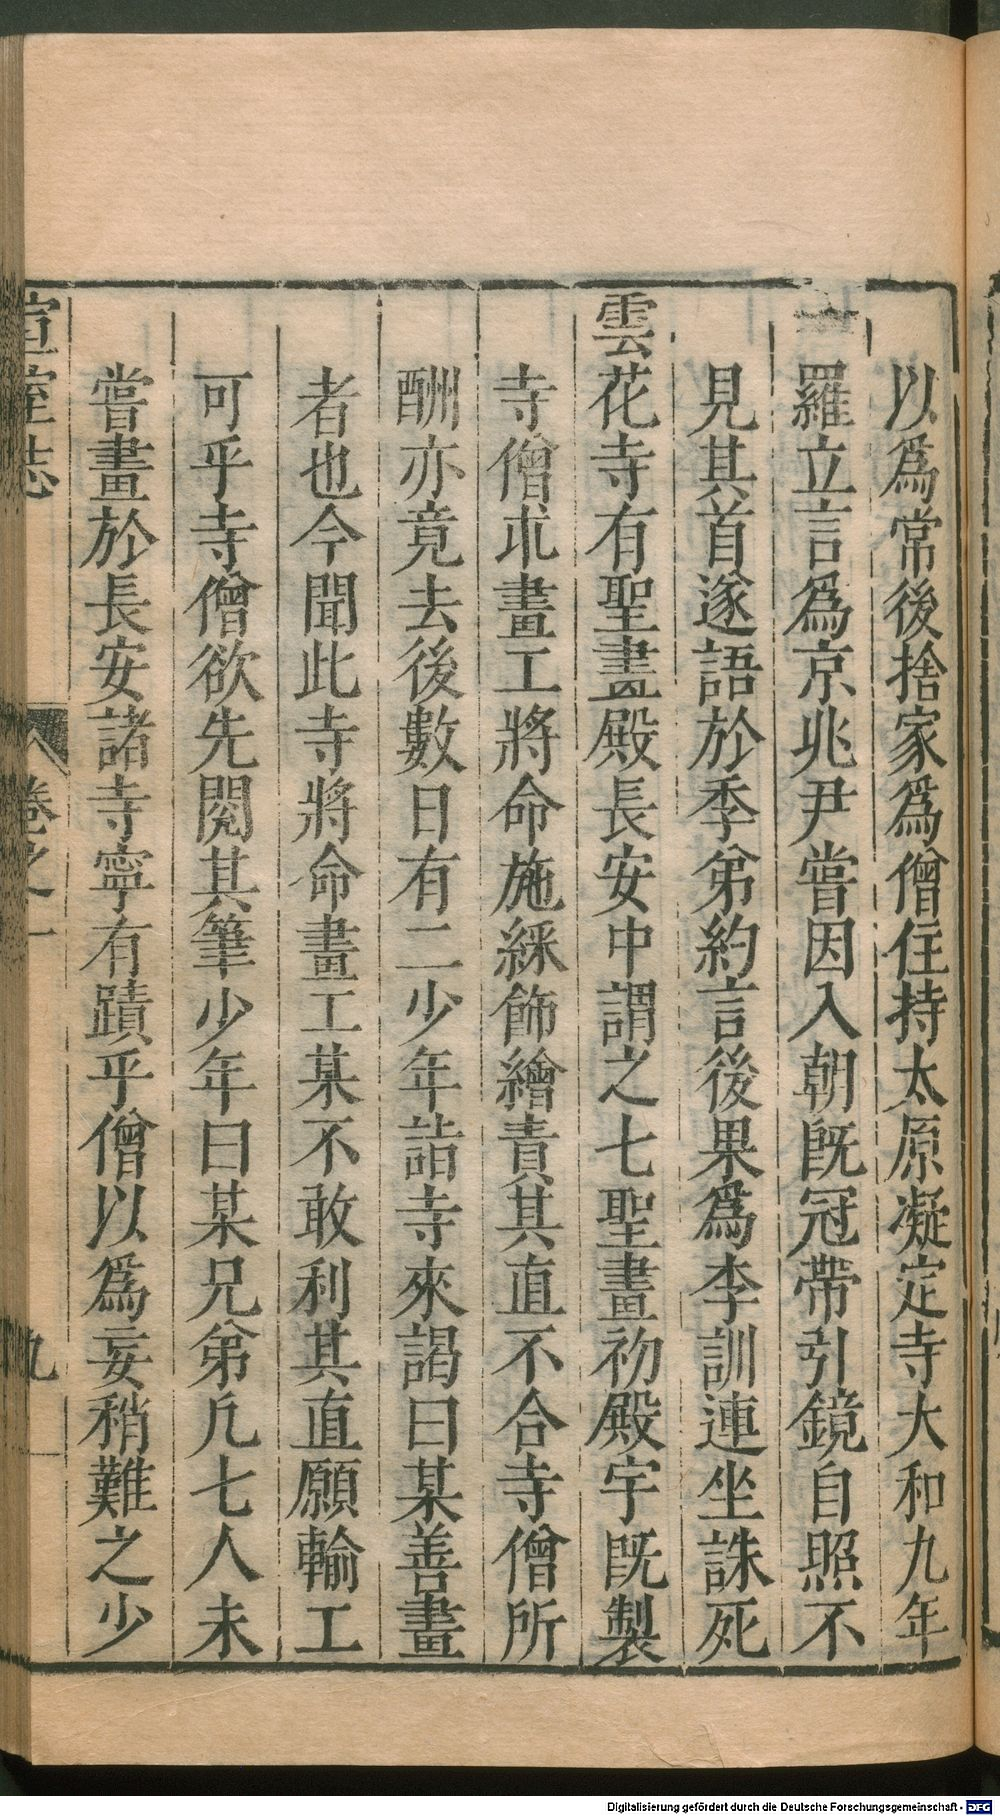 以爲常後捨家爲僧住持太原凝定寺大和九年
羅立言爲京兆尹嘗因入朝旣冠帶引鏡自照不
見其首遂語於季弟約言後果爲李訓連坐誅死
雲花寺有聖畫殿長安中謂之七聖畫初殿宇旣製
寺僧求畫工將命施綵飾繪責其直不合寺僧所
酬亦竟去後數日有二少年詣寺來謁曰某善畫
者也今聞此寺將命畫工某不敢利其直願輸工
可乎寺僧欲先閱其筆少年曰某兄弟凢七人未
嘗畫於長安諸寺寧有蹟乎僧以爲妄稍難之少
宣室志 卷之一 九
Digitalisierung gefördert durch die Deutsche Forschungsgemeinschaft - DFG